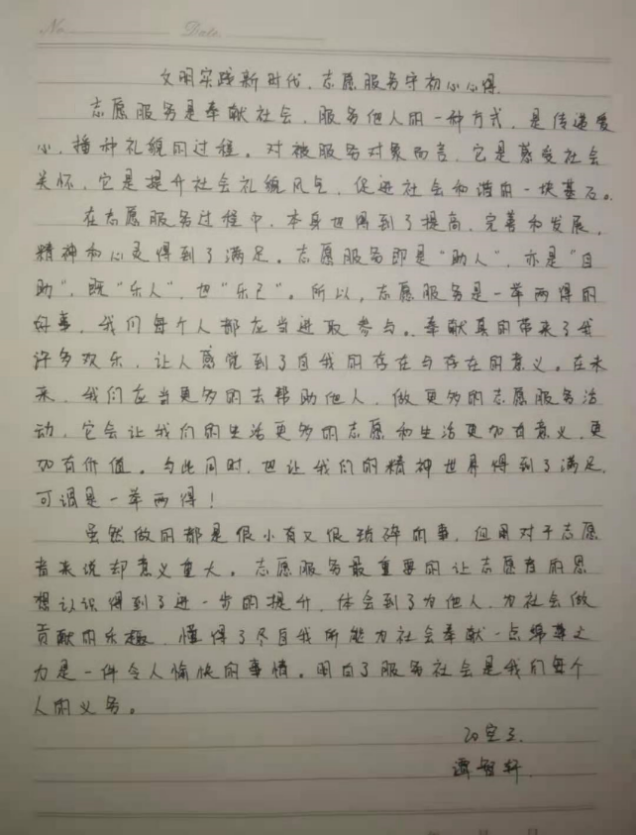 No. Date.
文明实践新时代，志愿服务守初心心得
志愿服务是奉献社会，服务他人的一种方式，是传递爱
心，播种礼貌的过程。对被服务对象而言，它是感受社会
关怀，它是提升社会礼貌风气，促进社会和谐的一块基石。
在志愿服务过程中，本身也得到了提高，完善和发展，
精神和心灵得到了满足。志愿服务即是"助人"，亦是"自
助"，既"乐人"，也"乐己"。所以，志愿服务是一举两得的
好事，我们每个人都应当进取参与。奉献真的带来了我
许多欢乐，让人感觉到了自我的存在与存在的意义。在未
来，我们应当更多的去帮助他人，做更多的志愿服务活
动，它会让我们的生活更多的志愿和生活更加有意义，更
加有价值。与此同时，也让我们的精神世界得到了满足，
可谓是一举两得！
虽然做的都是很小有又很琐碎的事，但用对于志愿
者来说却意义重大。志愿服务最重要的让志愿者的思
想认识得到了进一步的提升，体会到了为他人，为社会做
贡献的乐趣，懂得了尽自我所能为社会奉献一点绵薄之
力是一件令人愉快的事情。明白了服务社会是我们每个
人的义务。
谭智轩